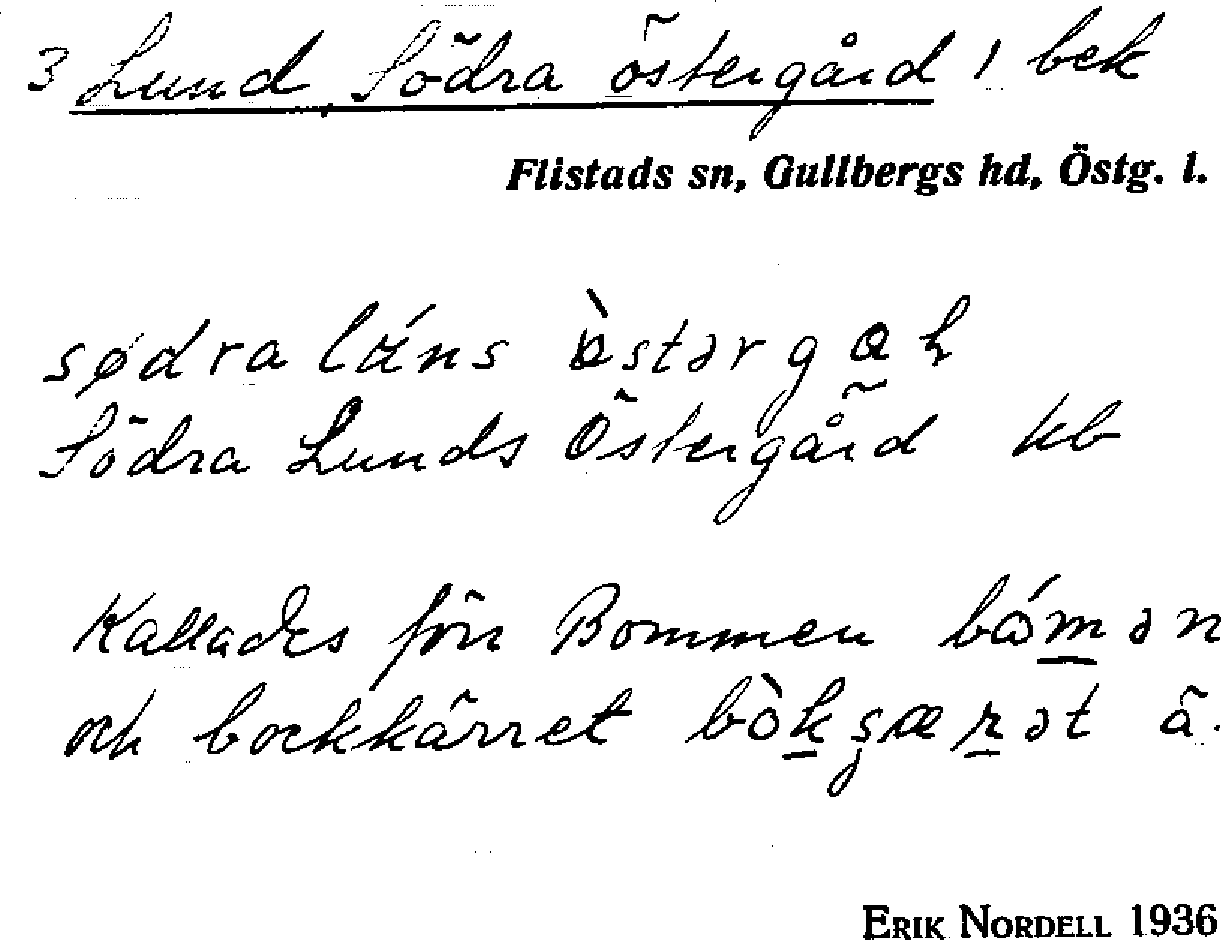 3 Lund, Södra östergård 1 bek
Flistads sn, Gullbergs hd, Östg. l.
sødra láns òstərgaɦ
Södra Lunds Östergård kb
Kallades förr Bommen bóm̲ən
och bockkärret bòk̲ʂær̲ət ä.
ERIK NORDELL 1936